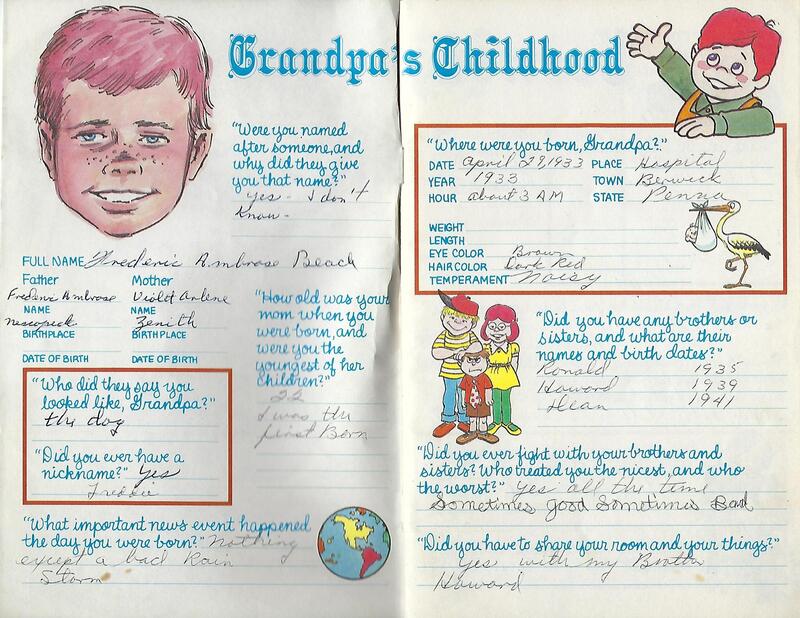 Grandpa's Childhood
"Were you named
after someone, and
why did they give
you that name?"
yes - I don't
know -
FULL NAME Frederic Ambrose Beach
Father
Mother
Frederic Ambrose
Violet Arlene
NAME
NAME
Nescopeck
Zenith
BIRTHPLACE
BIRTHPLACE
DATE OF BIRTH
DATE OF BIRTH
"How old was your
mom when you
were born, and
were you the
youngest of her
children?"
22
I was the
first Born
"Who did they say you
looked like, Grandpa?"
the dog
"Did you ever have a
nickname?" Yes
Freddie
"What important news event happened
the day you were born?" Nothing
except a bad Rain
Storm
"Where were you born, Grandpa?"
DATE April 29, 1933 PLACE Hospital
YEAR 1933 TOWN Berwick
HOUR about 3 AM STATE Penna
WEIGHT
LENGTH
EYE COLOR Brown
HAIR COLOR Dark Red
TEMPERAMENT Noisy
"Did you have any brothers or
sisters, and what are their
names and birth dates?"
Ronald 1935
Howard 1939
1941
"Did you ever fight with your brothers and
sisters? Who treated you the nicest, and who
the worst?" Yes all the time
Sometimes good Sometimes Bad
"Did you have to share your room and your things?"
Yes with my Brother
Howard